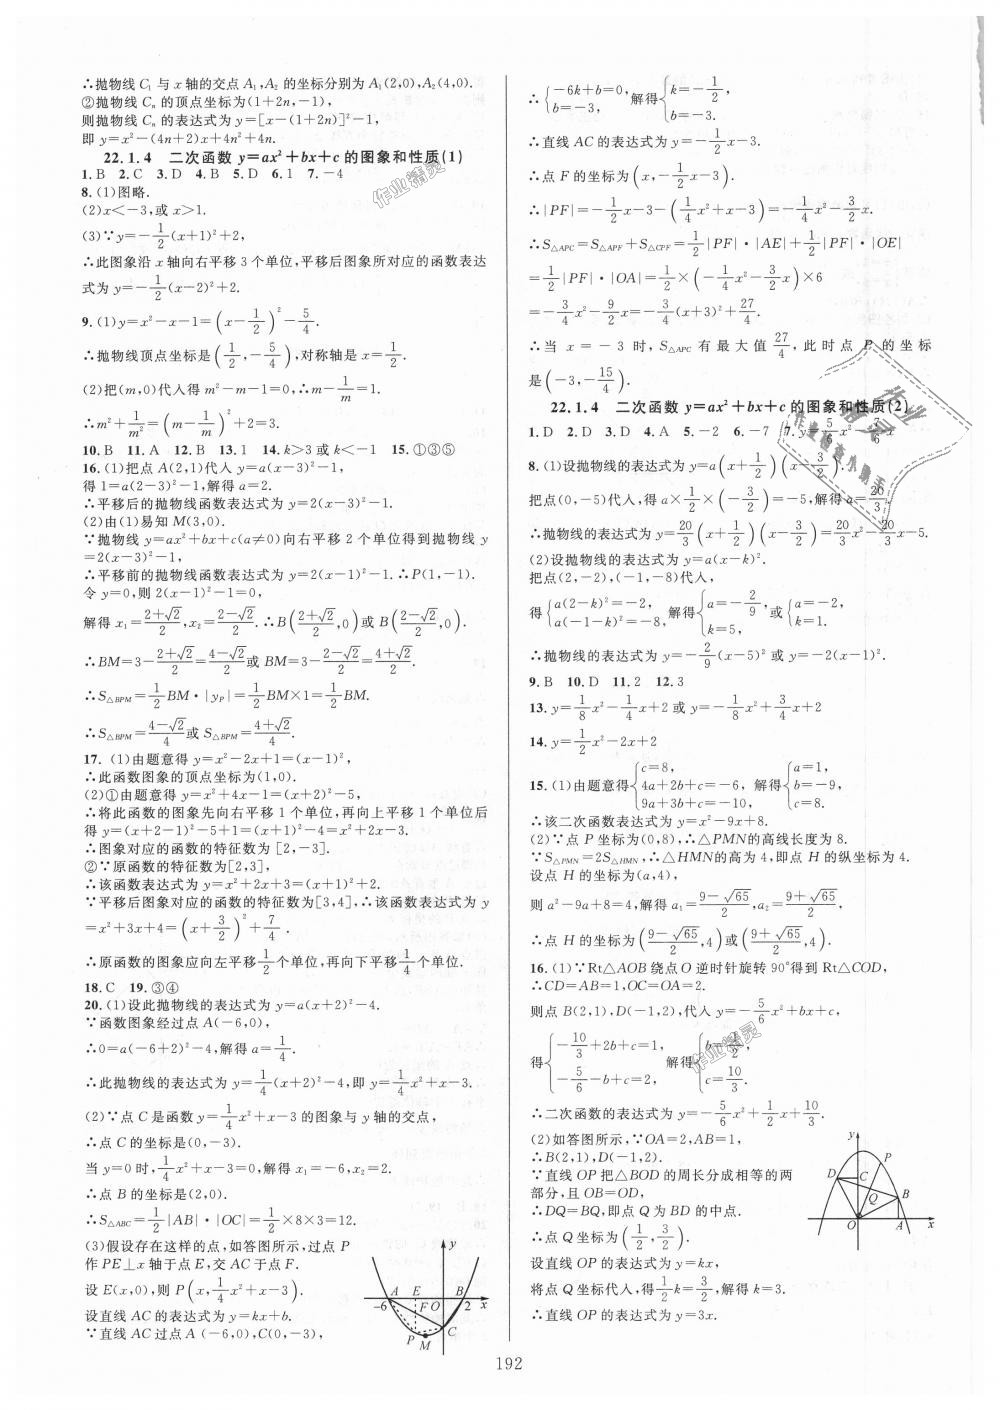 ∴抛物线 C₁ 与 x 轴的交点 A₁,A₂ 的坐标分别为 A₁(2,0),A₂(4,0).
②抛物线 Cₙ 的顶点坐标为(1+2n,-1),
则抛物线 Cₙ 的表达式为 y=[x-(1+2n)]²-1,
即 y=x²-(4n+2)x+4n²+4n.
22.1.4 二次函数 y=ax²+bx+c 的图象和性质(1)
1.B 2.C 3.D 4.B 5.D 6.1 7.-4
8.(1)图略.
(2)x<-3,或 x>1.
(3)∵y=-1/2(x+1)²+2,
∴此图象沿 x 轴向右平移 3 个单位,平移后图象所对应的函数表达
式为 y=-1/2(x-2)²+2.
9.(1)y=x²-x-1=(x-1/2)²-5/4.
∴抛物线顶点坐标是(1/2,-5/4),对称轴是 x=1/2.
(2)把(m,0)代入得 m²-m-1=0,∴m-1/m=1.
∴m²+1/m²=(m-1/m)²+2=3.
10.B 11.A 12.B 13.1 14.k>3 或 k<-1 15.①③⑤
16.(1)把点 A(2,1)代入 y=a(x-3)²-1,
得 1=a(2-3)²-1,解得 a=2.
∴平移后的抛物线函数表达式为 y=2(x-3)²-1.
(2)由(1)易知 M(3,0).
∵抛物线 y=ax²+bx+c(a≠0)向右平移 2 个单位得到抛物线 y
=2(x-3)²-1,
∴平移前的抛物线函数表达式为 y=2(x-1)²-1.∴P(1,-1).
令 y=0,则 2(x-1)²-1=0,
解得 x₁=(2+√2)/2,x₂=(2-√2)/2.∴B((2+√2)/2,0)或 B((2-√2)/2,0).
∴BM=3-(2+√2)/2=(4-√2)/2或 BM=3-(2-√2)/2=(4+√2)/2.
∴S△BPM=1/2BM·|yP|=1/2BM×1=1/2BM.
∴S△BPM=(4-√2)/4或 S△BPM=(4+√2)/4.
17.(1)由题意得 y=x²-2x+1=(x-1)²,
∴此函数图象的顶点坐标为(1,0).
(2)①由题意得 y=x²+4x-1=(x+2)²-5,
∴将此函数的图象先向右平移 1 个单位,再向上平移 1 个单位后
得 y=(x+2-1)²-5+1=(x+1)²-4=x²+2x-3.
∴图象对应的函数的特征数为[2,-3].
②∵原函数的特征数为[2,3],
∴该函数表达式为 y=x²+2x+3=(x+1)²+2.
∵平移后图象对应的函数的特征数为[3,4],∴该函数表达式为 y
=x²+3x+4=(x+3/2)²+7/4.
∴原函数的图象应向左平移1/2个单位,再向下平移1/4个单位.
18.C 19.③④
20.(1)设此抛物线的表达式为 y=a(x+2)²-4.
∵函数图象经过点 A(-6,0),
∴0=a(-6+2)²-4,解得 a=1/4.
∴此抛物线的表达式为 y=1/4(x+2)²-4,即 y=1/4x²+x-3.
(2)∵点 C 是函数 y=1/4x²+x-3 的图象与 y 轴的交点,
∴点 C 的坐标是(0,-3).
当 y=0 时,1/4x²+x-3=0,解得 x₁=-6,x₂=2.
∴点 B 的坐标是(2,0).
∴S△ABC=1/2|AB|·|OC|=1/2×8×3=12.
(3)假设存在这样的点,如答图所示,过点 P
作 PE⊥x 轴于点 E,交 AC 于点 F.
设 E(x,0),则 P(x,1/4x²+x-3).
设直线 AC 的表达式为 y=kx+b.
∵直线 AC 过点 A(-6,0),C(0,-3),
y
A E B
-6 F O 2 x
P C
M
∴{-6k+b=0, b=-3, 解得{k=-1/2, b=-3.
∴直线 AC 的表达式为 y=-1/2x-3.
∴点 F 的坐标为(x,-1/2x-3).
∴|PF|=-1/2x-3-(1/4x²+x-3)=-1/4x²-3/2x.
∴S△APC=S△APF+S△CPF=1/2|PF|·|AE|+1/2|PF|·|OE|
=1/2|PF|·|OA|=1/2×(-1/4x²-3/2x)×6
=-3/4x²-9/2x=-3/4(x+3)²+27/4
∴当 x=-3 时,S△APC 有最大值27/4,此时点 P 的坐标
是(-3,-15/4).
22.1.4 二次函数 y=ax²+bx+c 的图象和性质(2)
1.D 2.D 3.D 4.A 5.-2 6.-7 7.y=5/6x² 7/6x
8.(1)设抛物线的表达式为 y=a(x+1/2)(x-3/2).
把点(0,-5)代入,得 a×1/2×(-3/2)=-5,解得 a=20/3.
∴抛物线的表达式为 y=20/3(x+1/2)(x-3/2)=20/3x²-20/3x-5.
(2)设抛物线的表达式为 y=a(x-k)².
把点(2,-2),(-1,-8)代入,
得{a(2-k)²=-2, a(-1-k)²=-8, 解得{a=-2/9, k=5, 或{a=-2, k=1.
∴抛物线的表达式为 y=-2/9(x-5)² 或 y=-2(x-1)².
9.B 10.D 11.2 12.3
13.y=1/8x²-1/4x+2 或 y=-1/8x²+3/4x+2
14.y=1/2x²-2x+2
15.(1)由题意得{c=8, 4a+2b+c=-6, 9a+3b+c=-10, 解得{a=1, b=-9, c=8.
∴该二次函数表达式为 y=x²-9x+8.
(2)∵点 P 坐标为(0,8),∴△PMN的高线长度为 8.
∵S△PMN=2S△HMN,∴△HMN的高为 4,即点 H 的纵坐标为 4.
设点 H 的坐标为(a,4),
则 a²-9a+8=4,解得 a₁=(9-√65)/2,a₂=(9+√65)/2,
∴点 H 的坐标为((9-√65)/2,4)或((9+√65)/2,4).
16.(1)∵Rt△AOB 绕点 O 逆时针旋转 90°得到 Rt△COD,
∴CD=AB=1,OC=OA=2.
则点 B(2,1),D(-1,2),代入 y=-5/6x²+bx+c,
得{-10/3+2b+c=1, -5/6-b+c=2, 解得{b=1/2, c=10/3.
∴二次函数的表达式为 y=-5/6x²+1/2x+10/3.
(2)如答图所示,∵OA=2,AB=1,
∴B(2,1),D(-1,2).
∵直线 OP 把△BOD 的周长分成相等的两
部分,且 OB=OD,
∴DQ=BQ,即点 Q 为 BD 的中点.
∴点 Q 坐标为(1/2,3/2).
设直线 OP 的表达式为 y=kx,
将点 Q 坐标代入,得1/2k=3/2,解得 k=3.
∴直线 OP 的表达式为 y=3x.
y
P
D C
Q B
O A x
192
作业精灵
作业检查小助手
作业精灵
作业精灵